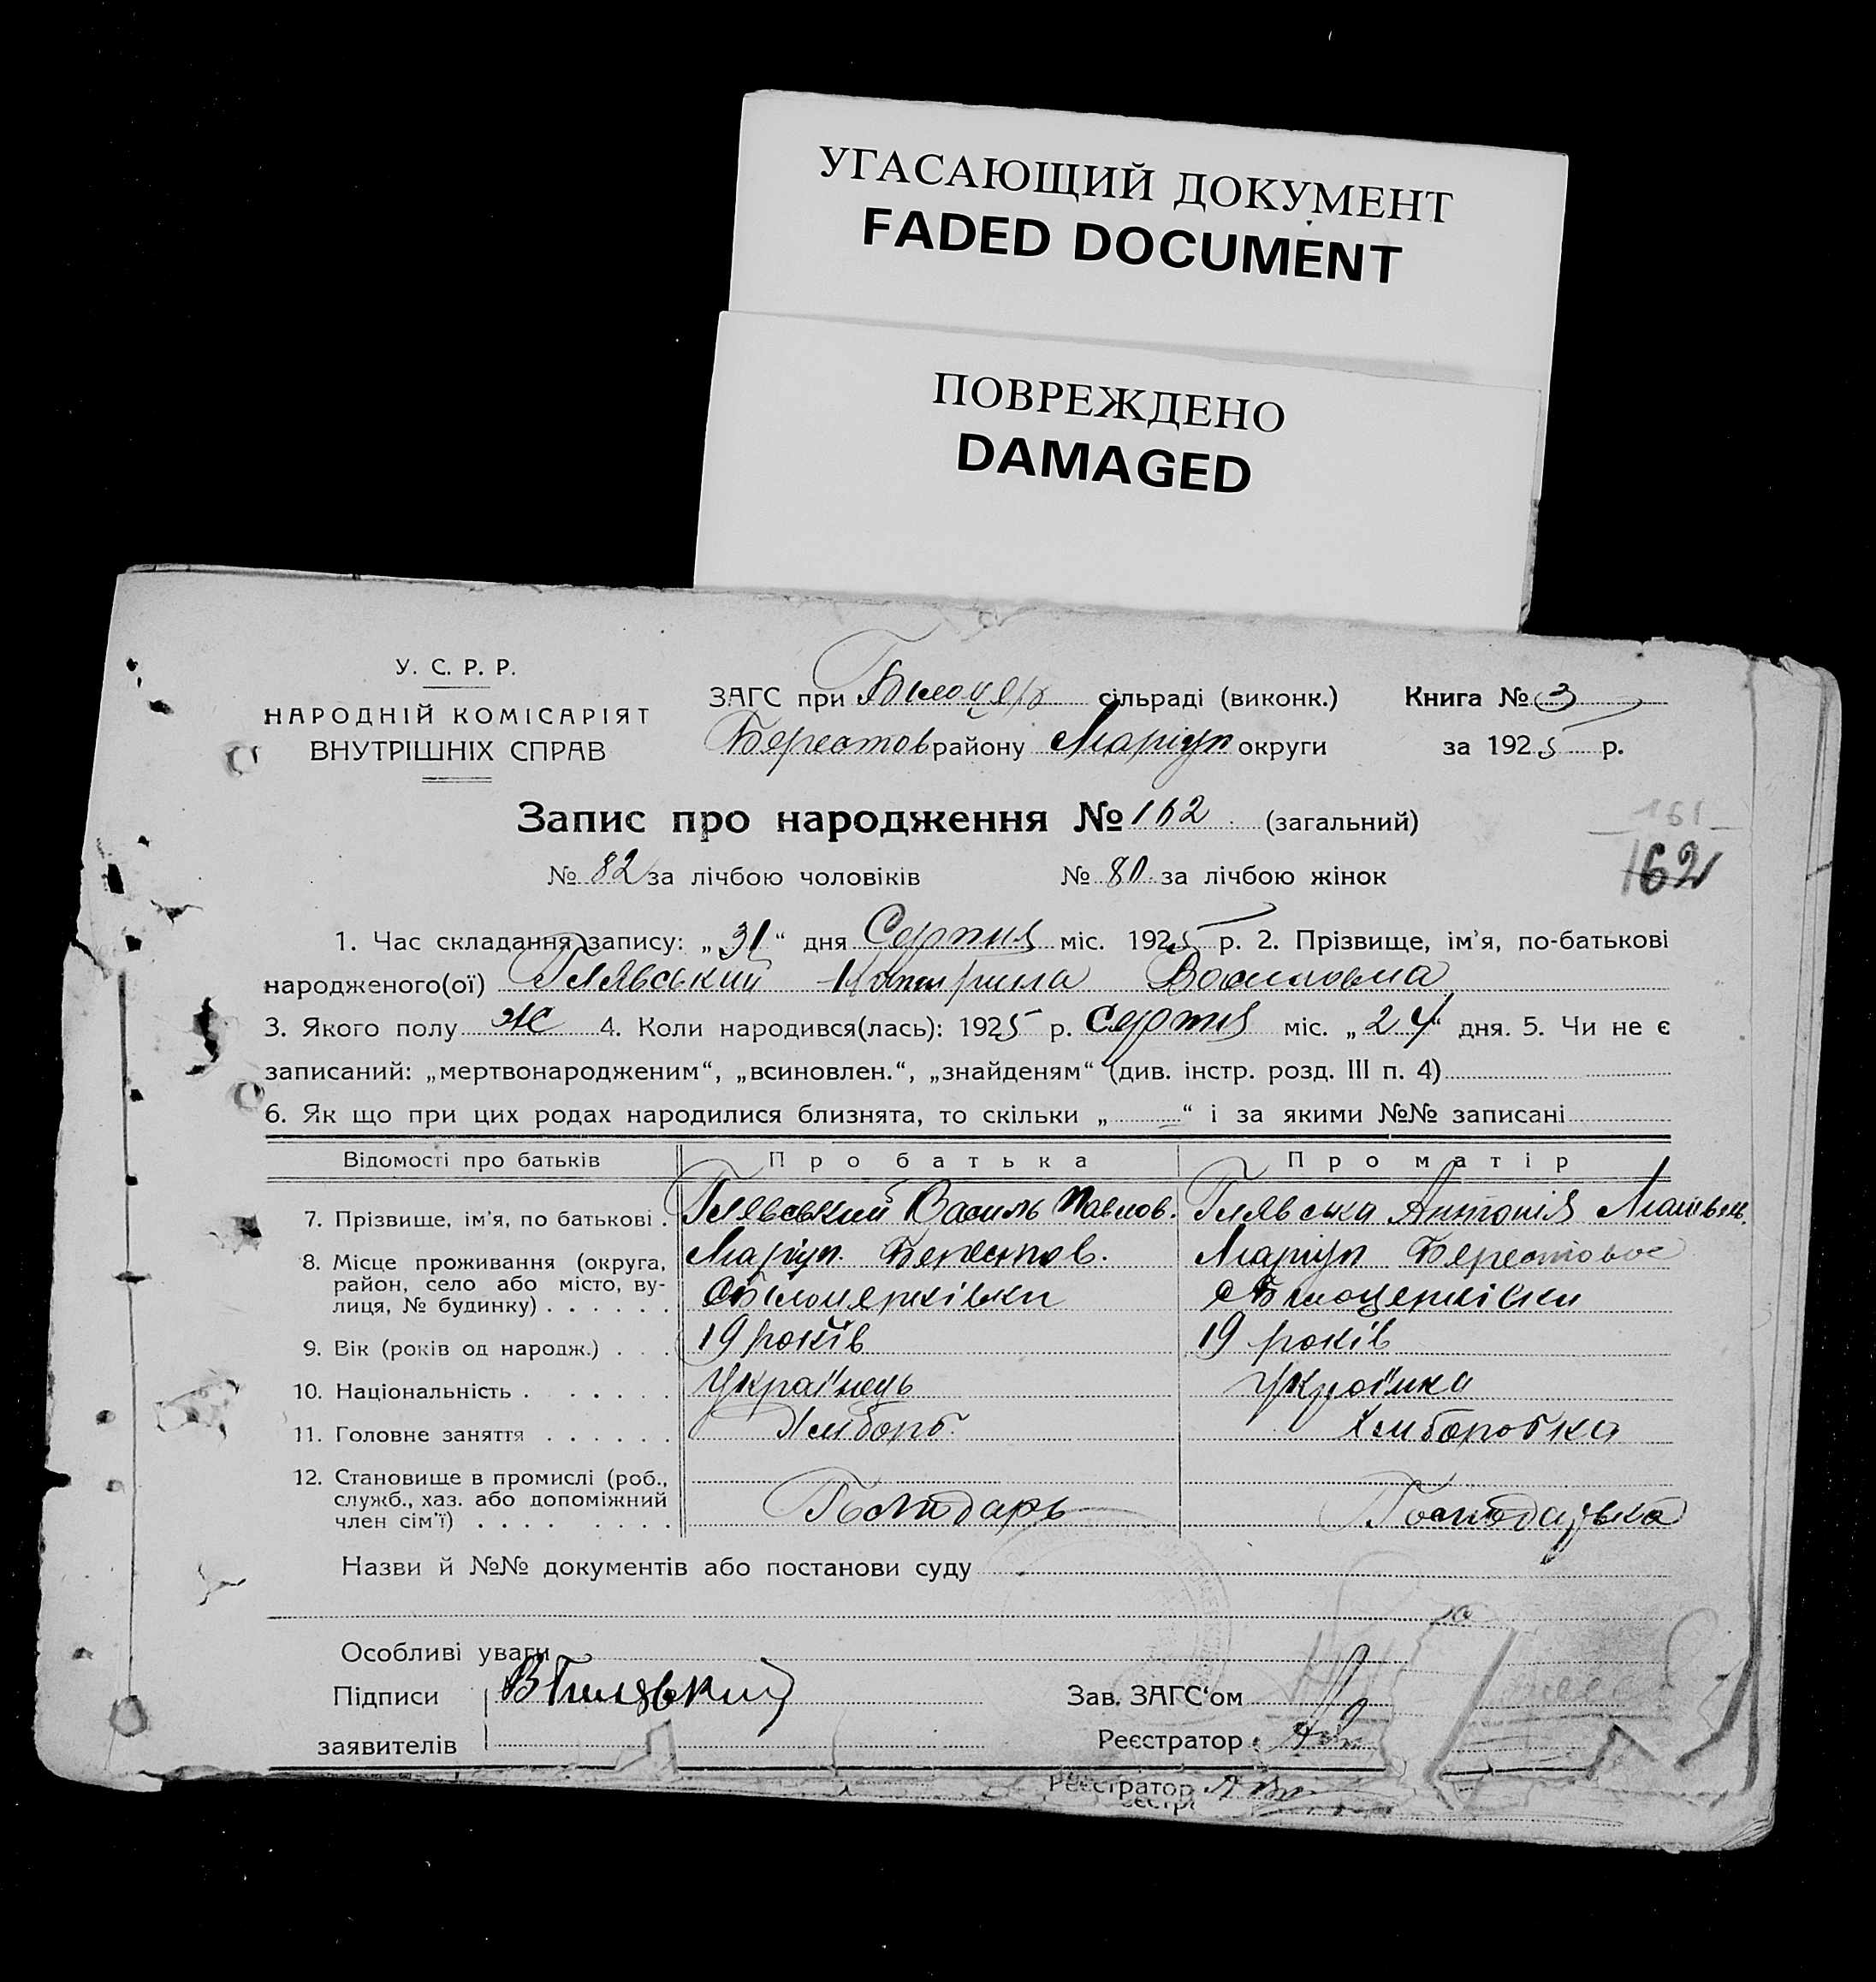 УГАСАЮЩИЙ ДОКУМЕНТ
FADED DOCUMENT
ПОВРЕЖДЕНО
DAMAGED
У. С. Р. Р.
НАРОДНІЙ КОМІСАРІЯТ
ВНУТРІШНІХ СПРАВ
ЗАГС при Білоцерк сільраді (виконк.) Книга № 3
Берестов району Маріуп округи за 1925 р.
Запис про народження № 162 (загальний)
161
162
№ 82 за лічбою чоловіків № 80 за лічбою жінок
1. Час складання запису: „31“ дня Серпня міс. 1925 р. 2. Прізвище, ім'я, по-батькові
народженого(ої) Гилявський Катерина Василовна
3. Якого полу Ж 4. Коли народився(лась): 1925 р. Серпня міс. „24“ дня. 5. Чи не є
записаний: „мертвонародженим“, „всиновлен.“, „знайденям“ (див. інстр. розд. III п. 4)
6. Як що при цих родах народилися близнята, то скільки „ “ і за якими №№ записані
Відомості про батьків Про батька Про матір
7. Прізвище, ім'я, по батькові . Гилявський Василь Павлов. Гилявська Антонія Матвєєв.
8. Місце проживання (округа, Маріуп. Берестов. Маріуп Берестовое
район, село або місто, ву-
лиця, № будинку) . . . . . . с Білоцерківки с Білоцерківки
9. Вік (років од народж.) . . . 19 років 19 років
10. Національність . . . . . . Українець Українка
11. Головне заняття . . . . . . Хлібороб. Хліборобка
12. Становище в промислі (роб.,
служб., хаз. або допоміжний
член сім'ї) . . . . . . . . Господарь Господарька
Назви й №№ документів або постанови суду
Особливі уваги
Підписи ВГилявский Зав. ЗАГС'ом
заявителів Реєстратор
Реєстратор